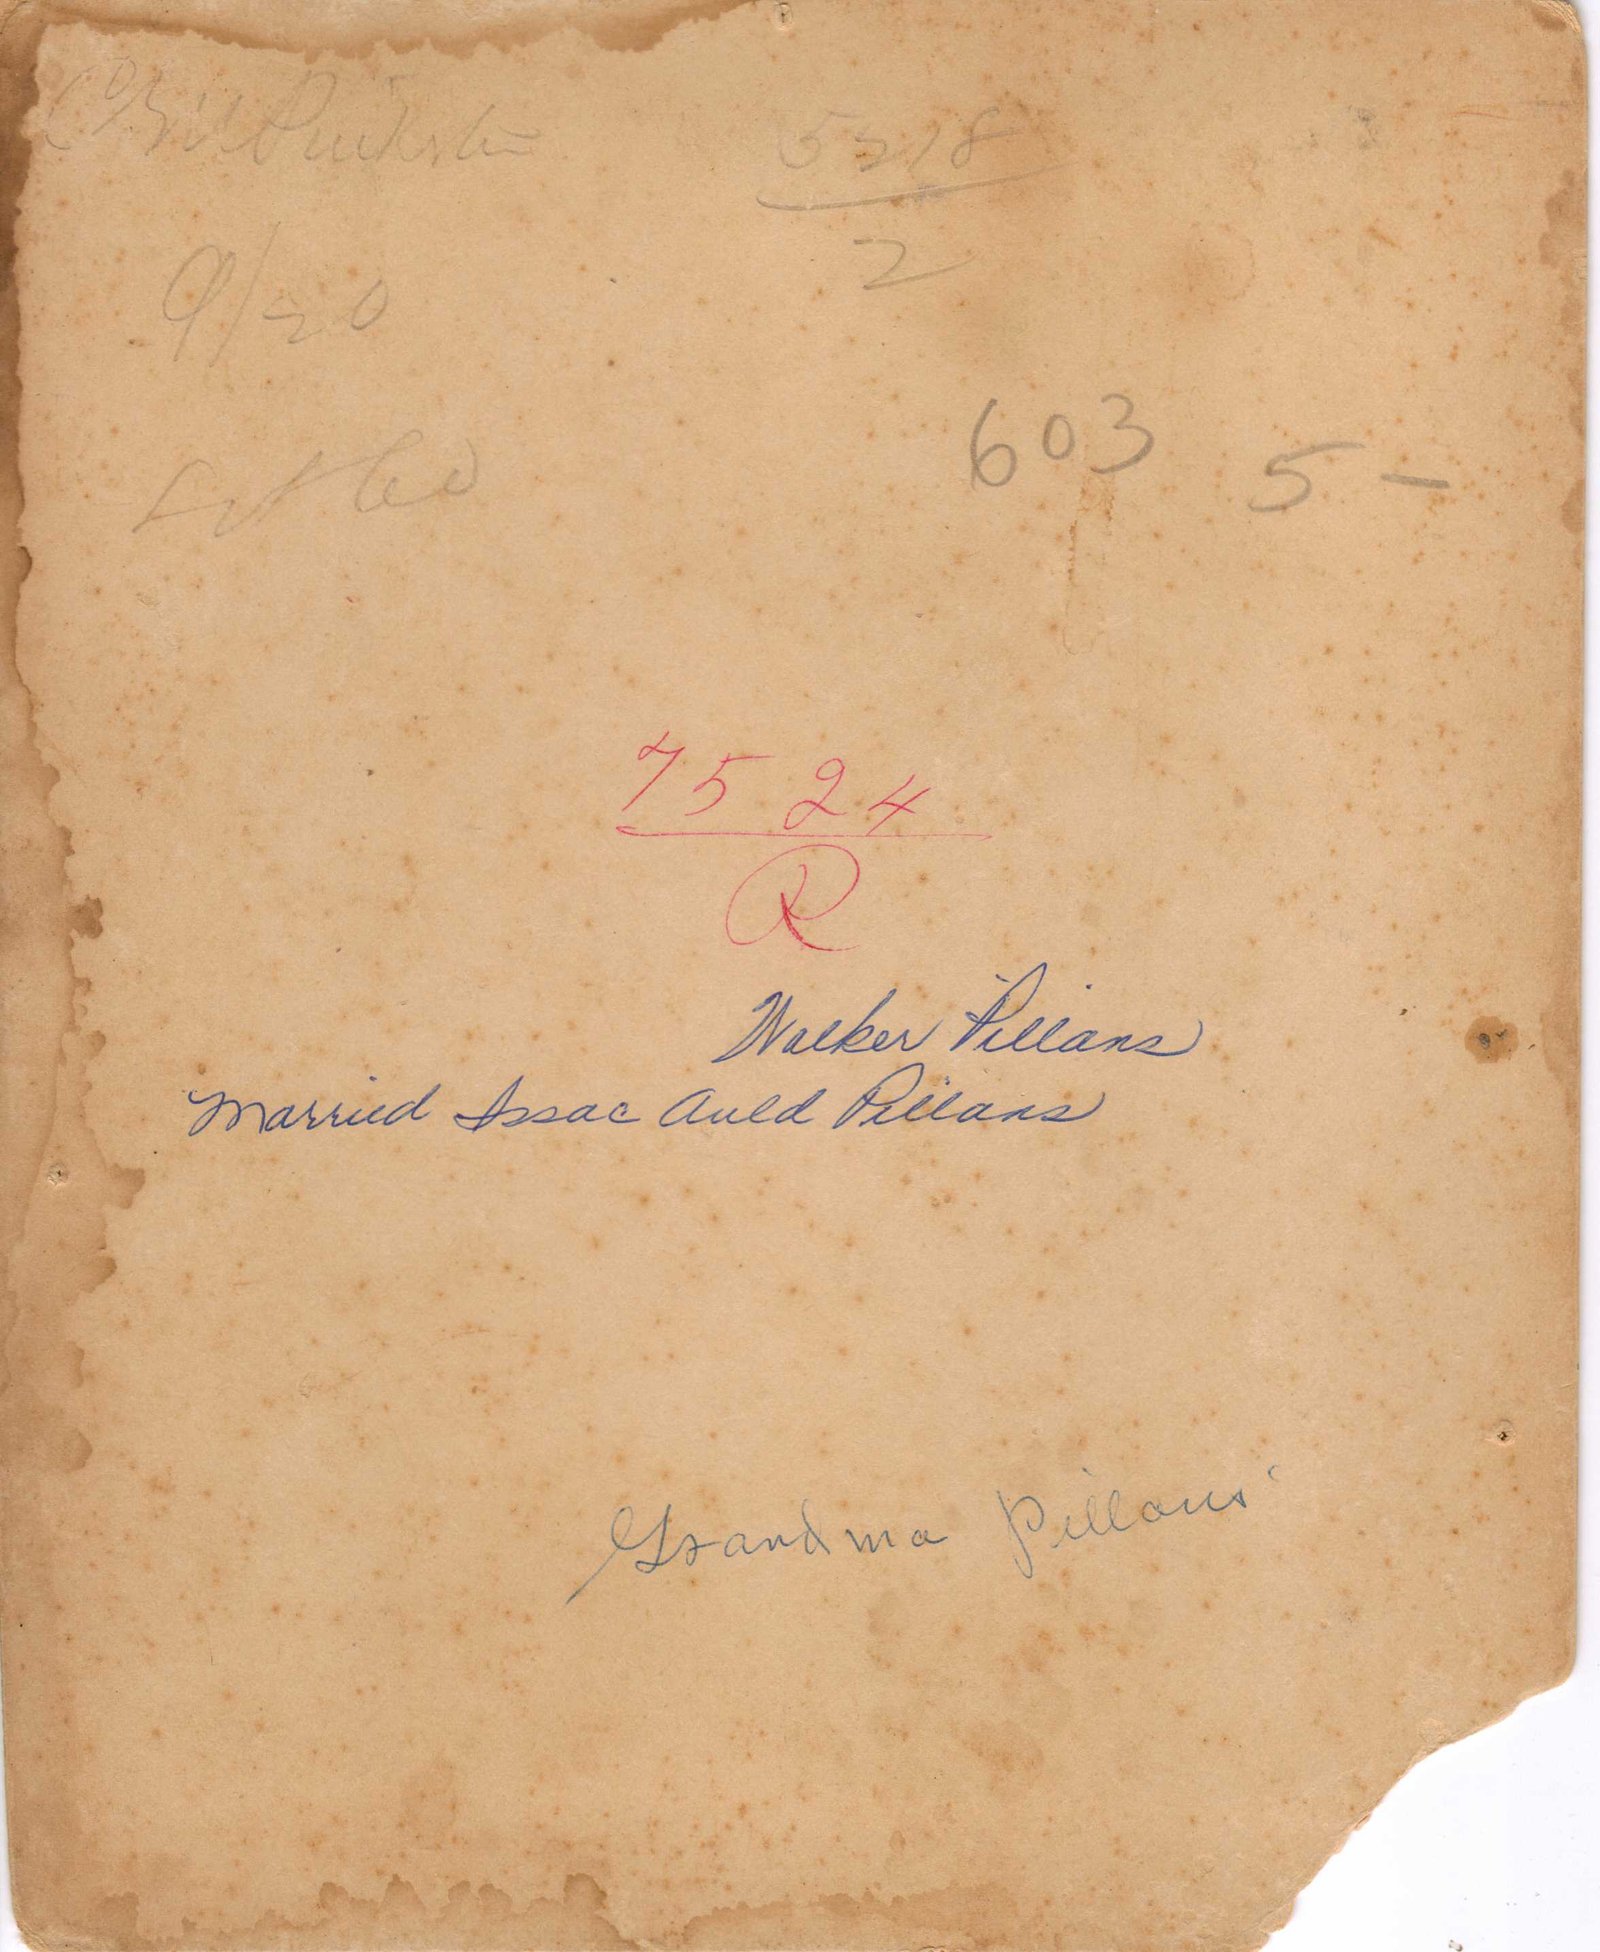 5218
2
9/20
603 5-
7524
R
Walker Pillans
Married Issac Auld Pillans
Grandma Pillans